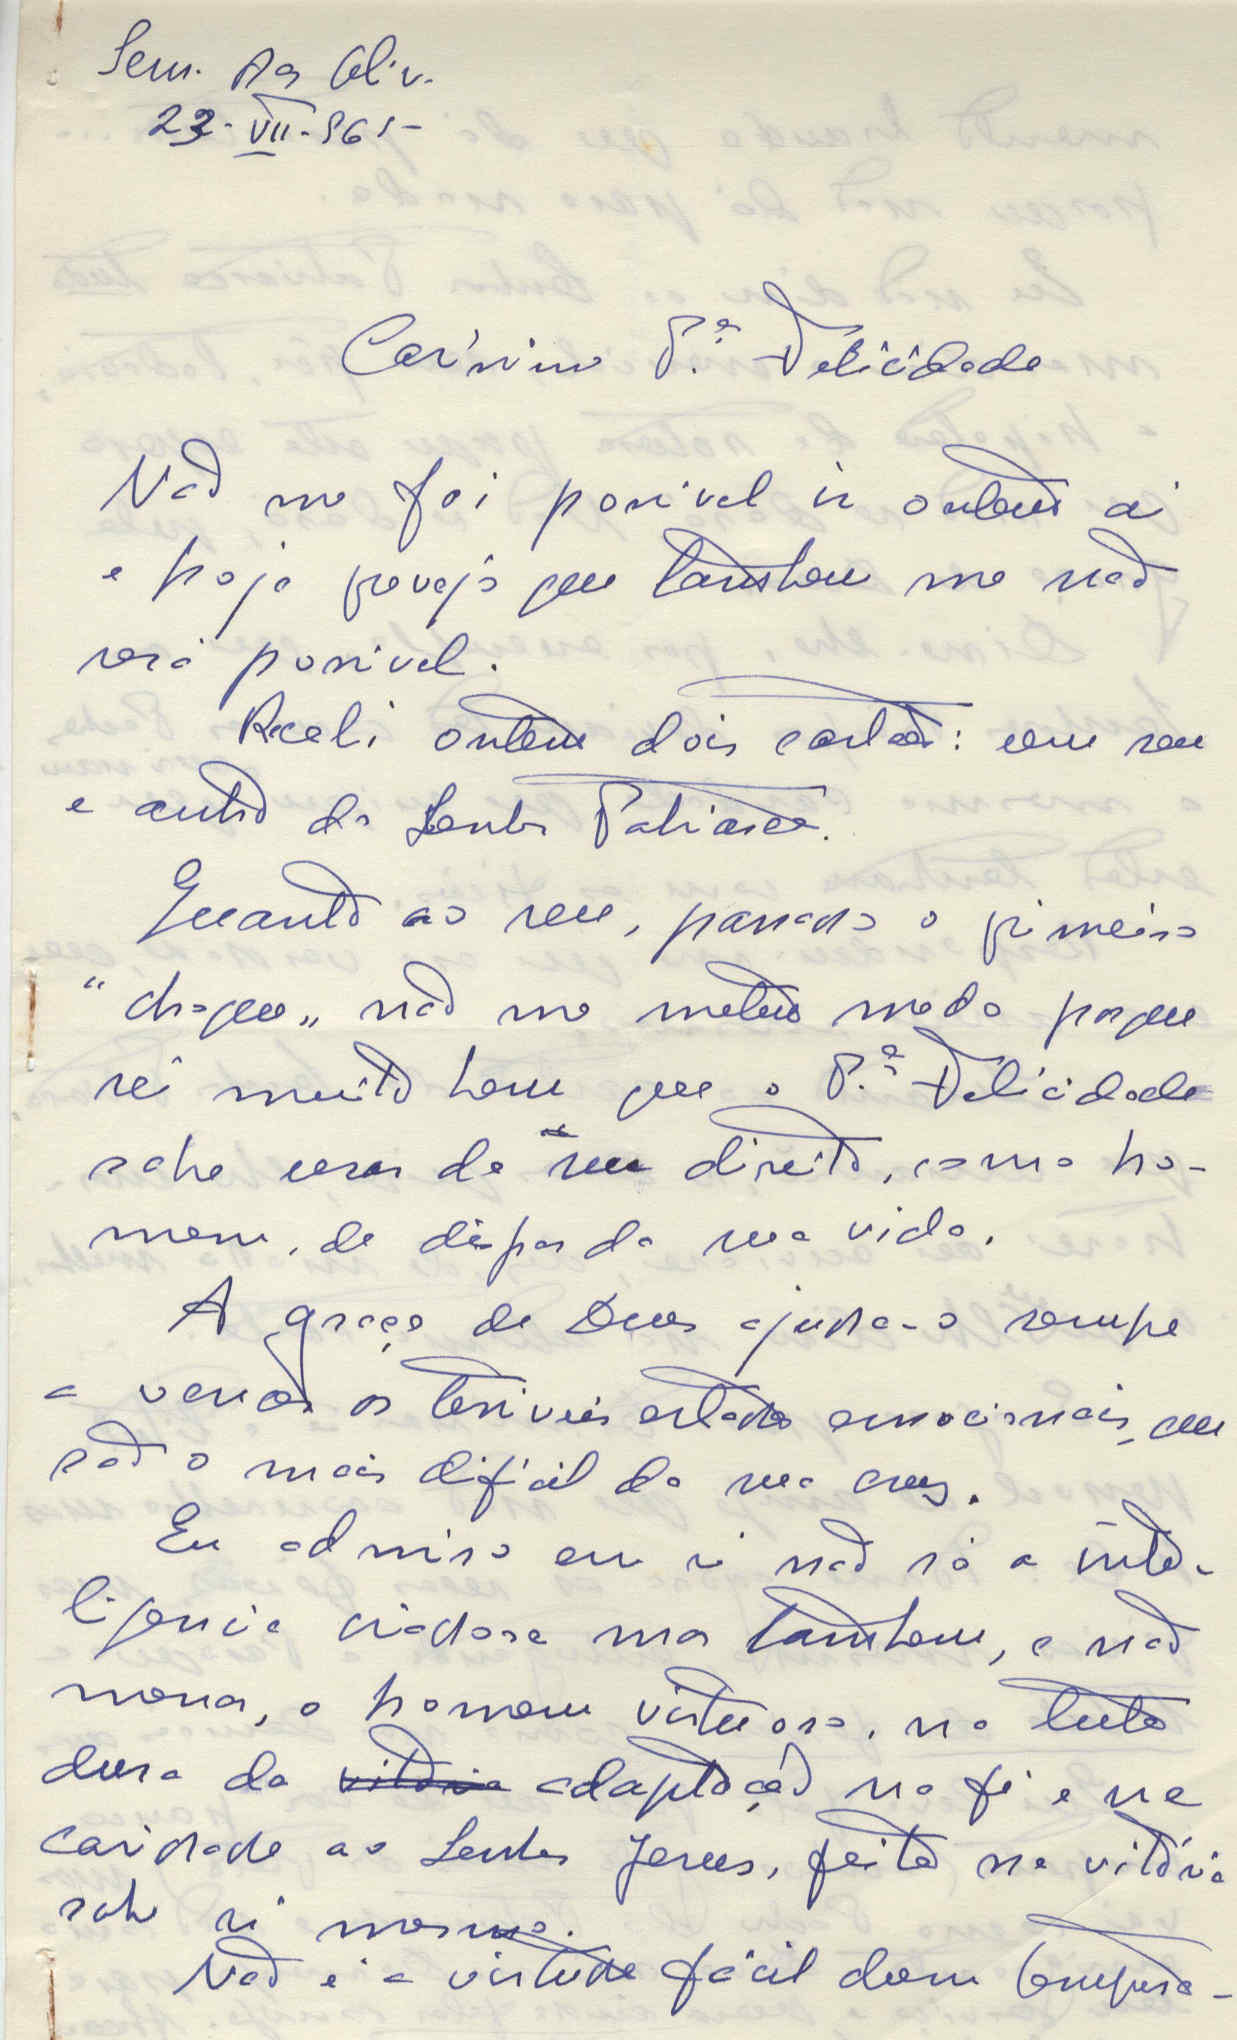 Sem. dos Oliv.
23-VII-965-
Caríssimo P.e Felicidade
Não me foi possivel ir ontem aí
e hoje prevejo que tambem me não
será possivel.
Recebi ontem dois cartões: um seu
e outro do Senhor Patriarca.
Quanto ao seu, passado o primeiro
"choque" não me meteu medo porque
sei muito bem que o P.e Felicidade
sabe usar do seu direito, como ho-
mem, de dispor da sua vida.
A graça de Deus ajuda-o sempre
a vencer os terriveis estados emocionais, que
são o mais difícil da sua cruz.
Eu admiro em si não só a inte-
ligencia criadora mas tambem, e não
menos, o homem virtuoso, na luta
dura da vitória adaptação na fé e na
caridade ao Senhor Jesus, feita na vitória
sobre si mesmo.
Não é a virtude fácil dum tempera-